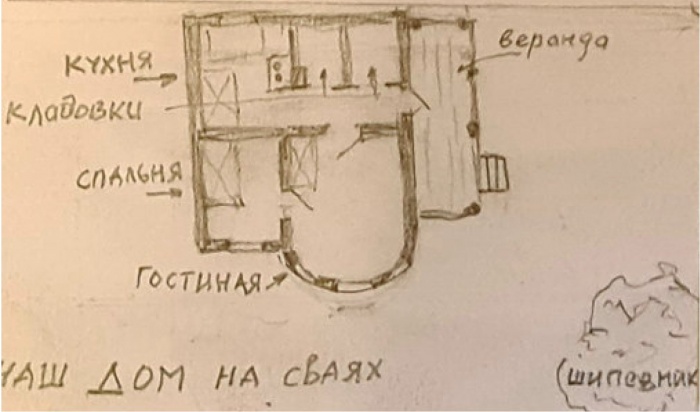 веранда
КУХНЯ
КЛАДОВКИ
СПАЛЬНЯ
ГОСТИНАЯ
НАШ ДОМ НА СВАЯХ
(шиповник